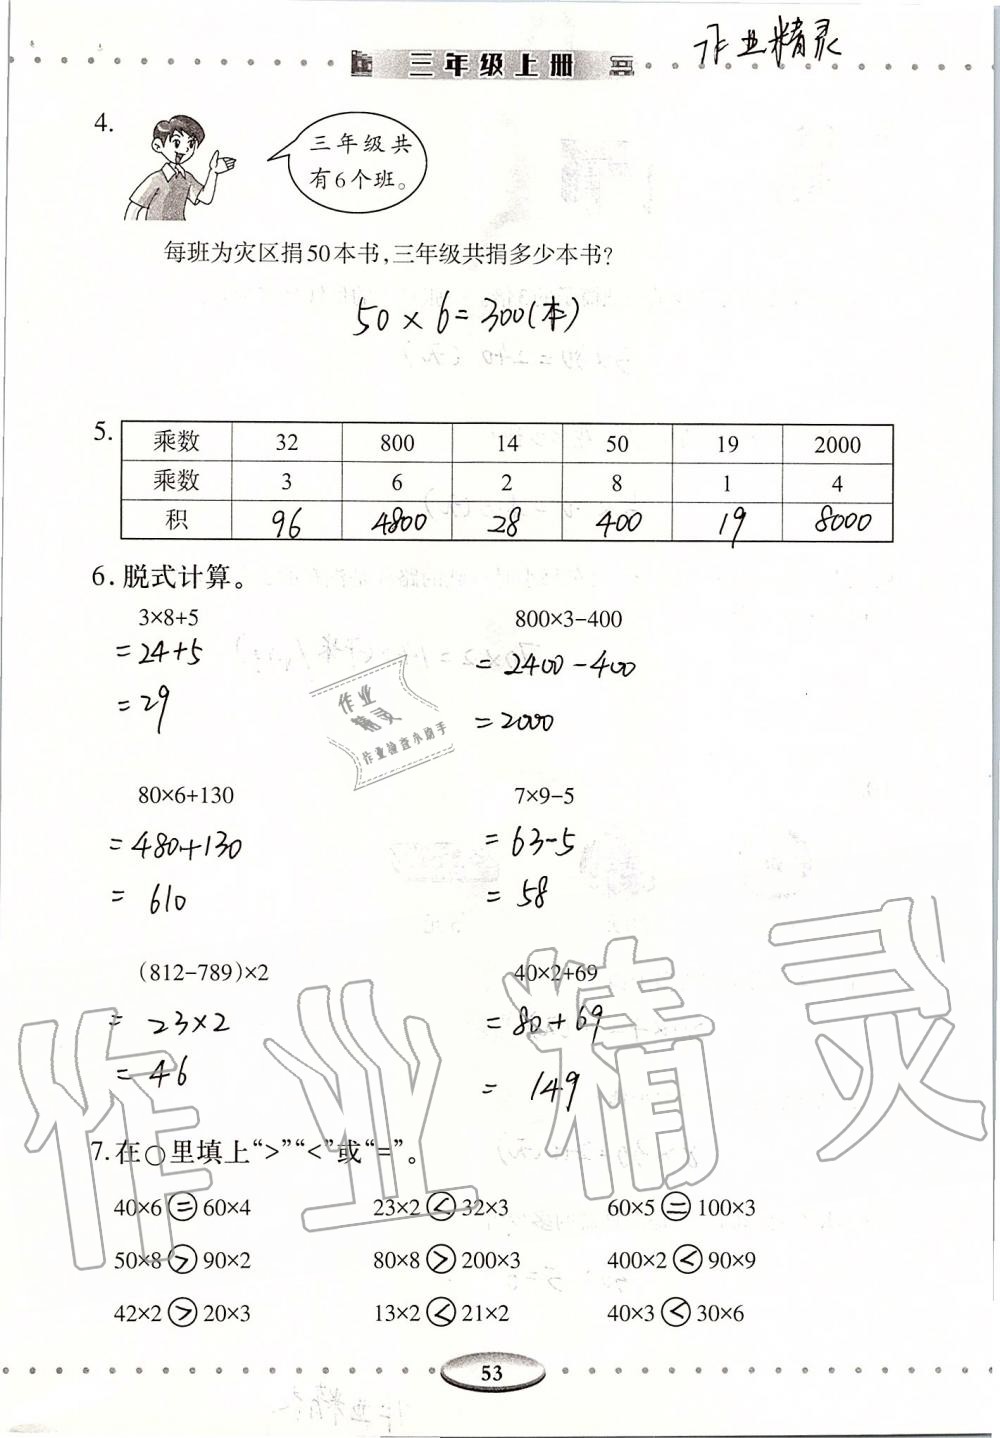 作业精灵
三年级上册
4.
三年级共
有6个班。
每班为灾区捐50本书,三年级共捐多少本书?
50×6=300(本)
5.
乘数 32 800 14 50 19 2000
乘数 3 6 2 8 1 4
积 96 4800 28 400 19 8000
6. 脱式计算。
3×8+5 800×3-400
=24+5 =2400-400
=29 =2000
作业
精灵
作业检查小助手
80×6+130 7×9-5
=480+130 =63-5
=610 =58
(812-789)×2 40×2+69
=23×2 =80+69
=46 =149
作业精灵
7. 在○里填上“>”“<”或“=”。
40×6 = 60×4 23×2 < 32×3 60×5 = 100×3
50×8 > 90×2 80×8 > 200×3 400×2 < 90×9
42×2 > 20×3 13×2 < 21×2 40×3 < 30×6
53